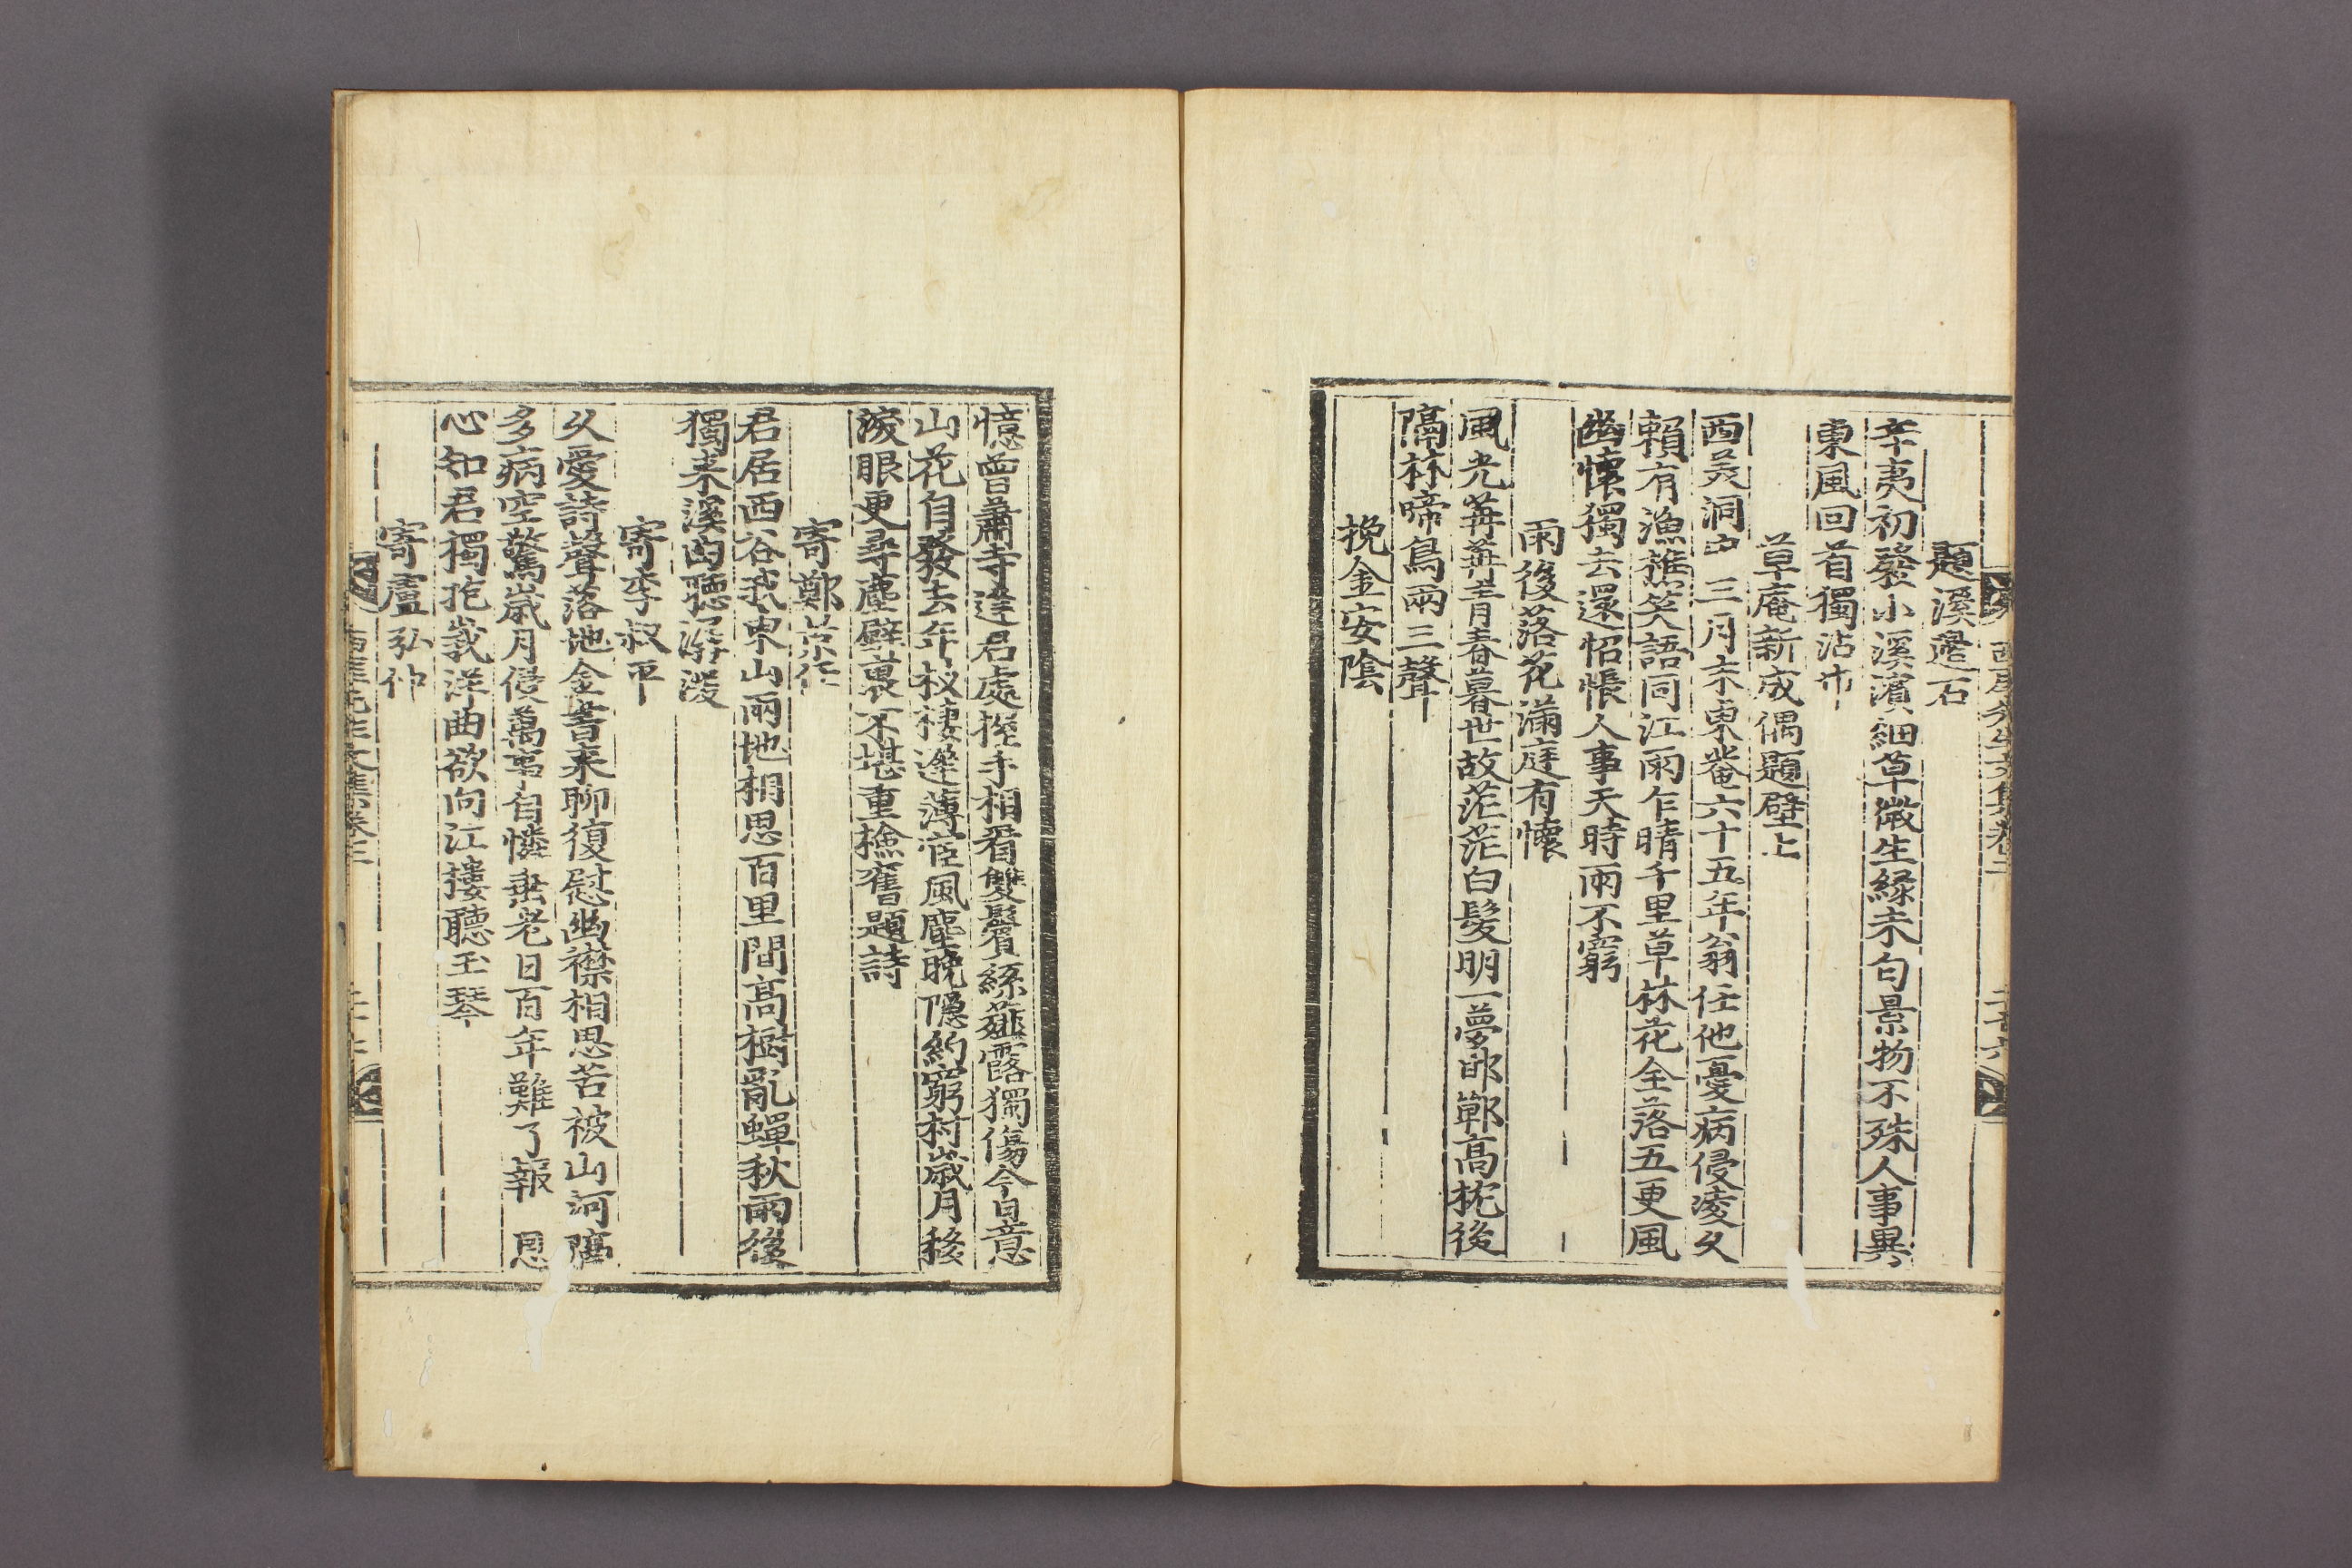 題溪邊石
辛夷初發小溪濱細草微生緑未匀景物不殊人事異
東風回首獨沾巾
草庵新成偶題壁上
西羙洞中三月末東巖六十五年翁任他憂病侵凌久
賴有漁樵笑語同江雨乍晴千里草林花全落五更風
幽懷獨去還怊悵人事天時兩不窮
雨後落花滿庭有懷
風光苒苒青春暮世故茫茫白髮明一夢邯鄲高枕後
隔林啼鳥兩三聲
挽金安陰
憶曾蕭寺逢君處握手相看雙鬢絲薤露獨傷今日意
山花自發去年枝棲遲薄宦風塵晚隱約窮村歲月移
淚眼更尋塵壁裏不堪重撿舊題詩
寄鄭景任
君居西谷我東山兩地相思百里間高樹亂蟬秋雨後
獨来溪曲聽潺湲
寄李叔平
久愛詩聲落地金書来聊復慰幽襟相思苦被山河隔
多病空驚歲月侵萬事自憐垂老日百年難了報恩
心知君獨抱峩洋曲欲向江摟聽玉琴
寄盧弘仲